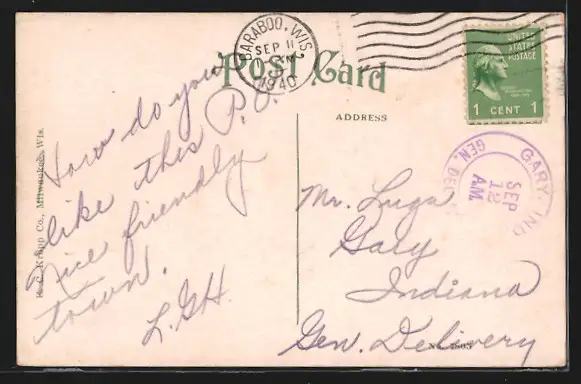 BARABOO, WIS.
SEP 11
1940
Post Card
UNITED
STATES
POSTAGE
1 CENT 1
ADDRESS
GARY, IND
SEP
12
AM
GEN. DEL
How do you
like this P.O.
Nice friendly
town.
L.G.H.
Mr. Luga
Gary
Indiana
Gen. Delivery
E. C. Kropp Co., Milwaukee, Wis.